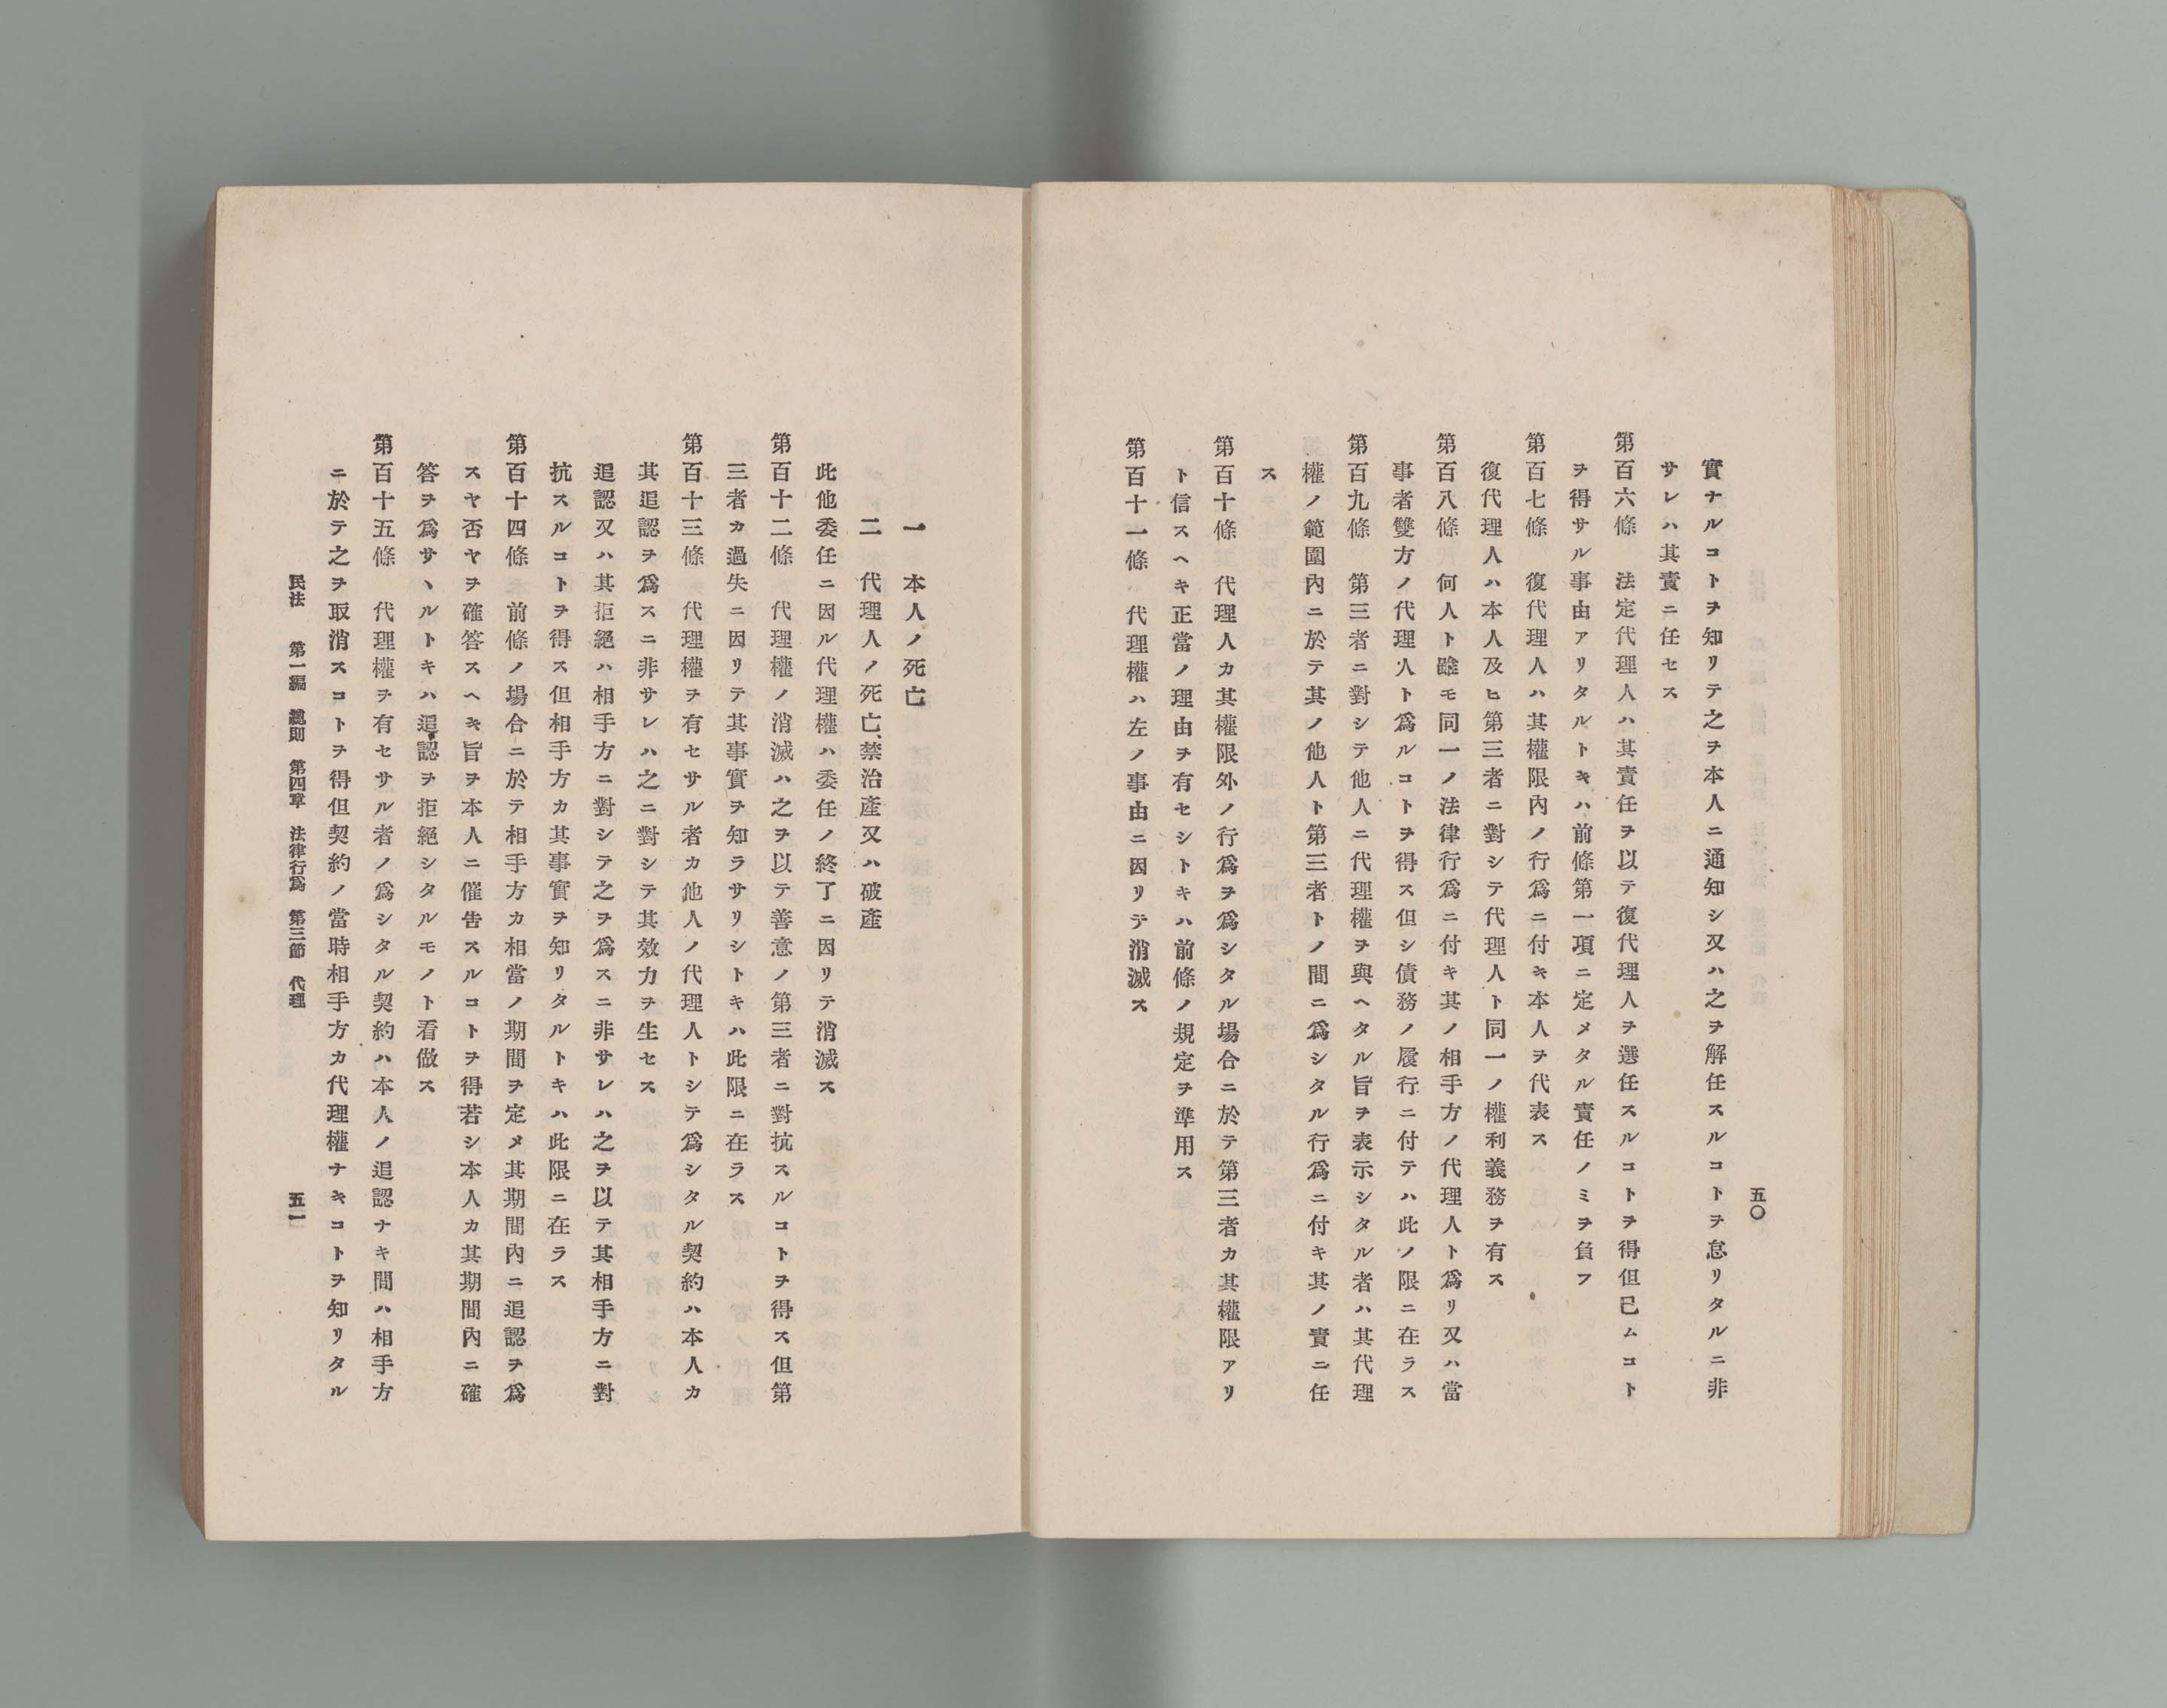 五〇
實ナルコトヲ知リテ之ヲ本人ニ通知シ又ハ之ヲ解任スルコトヲ怠リタルニ非
サレハ其責ニ任セス
第百六條　法定代理人ハ其責任ヲ以テ復代理人ヲ選任スルコトヲ得但已ムコト
ヲ得サル事由アリタルトキハ前條第一項ニ定メタル責任ノミヲ負フ
第百七條　復代理人ハ其權限內ノ行爲ニ付キ本人ヲ代表ス
復代理人ハ本人及ヒ第三者ニ對シテ代理人ト同一ノ權利義務ヲ有ス
第百八條　何人ト雖モ同一ノ法律行爲ニ付キ其ノ相手方ノ代理人ト爲リ又ハ當
事者雙方ノ代理人ト爲ルコトヲ得ス但シ債務ノ履行ニ付テハ此ノ限ニ在ラス
第百九條　第三者ニ對シテ他人ニ代理權ヲ與ヘタル旨ヲ表示シタル者ハ其代理
權ノ範圍內ニ於テ其ノ他人ト第三者トノ間ニ爲シタル行爲ニ付キ其ノ責ニ任
ス
第百十條　代理人カ其權限外ノ行爲ヲ爲シタル場合ニ於テ第三者カ其權限アリ
ト信スヘキ正當ノ理由ヲ有セシトキハ前條ノ規定ヲ準用ス
第百十一條　代理權ハ左ノ事由ニ因リテ消滅ス
一　本人ノ死亡
二　代理人ノ死亡、禁治產又ハ破產
此他委任ニ因ル代理權ハ委任ノ終了ニ因リテ消滅ス
第百十二條　代理權ノ消滅ハ之ヲ以テ善意ノ第三者ニ對抗スルコトヲ得ス但第
三者カ過失ニ因リテ其事實ヲ知ラサリシトキハ此限ニ在ラス
第百十三條　代理權ヲ有セサル者カ他人ノ代理人トシテ爲シタル契約ハ本人カ
其追認ヲ爲スニ非サレハ之ニ對シテ其效力ヲ生セス
追認又ハ其拒絕ハ相手方ニ對シテ之ヲ爲スニ非サレハ之ヲ以テ其相手方ニ對
抗スルコトヲ得ス但相手方カ其事實ヲ知リタルトキハ此限ニ在ラス
第百十四條　前條ノ場合ニ於テ相手方カ相當ノ期間ヲ定メ其期間內ニ追認ヲ爲
スヤ否ヤヲ確答スヘキ旨ヲ本人ニ催告スルコトヲ得若シ本人カ其期間內ニ確
答ヲ爲サヽルトキハ追認ヲ拒絕シタルモノト看做ス
第百十五條　代理權ヲ有セサル者ノ爲シタル契約ハ本人ノ追認ナキ間ハ相手方
ニ於テ之ヲ取消スコトヲ得但契約ノ當時相手方カ代理權ナキコトヲ知リタル
民法　第一編　總則　第四章　法律行爲　第三節　代理　五一